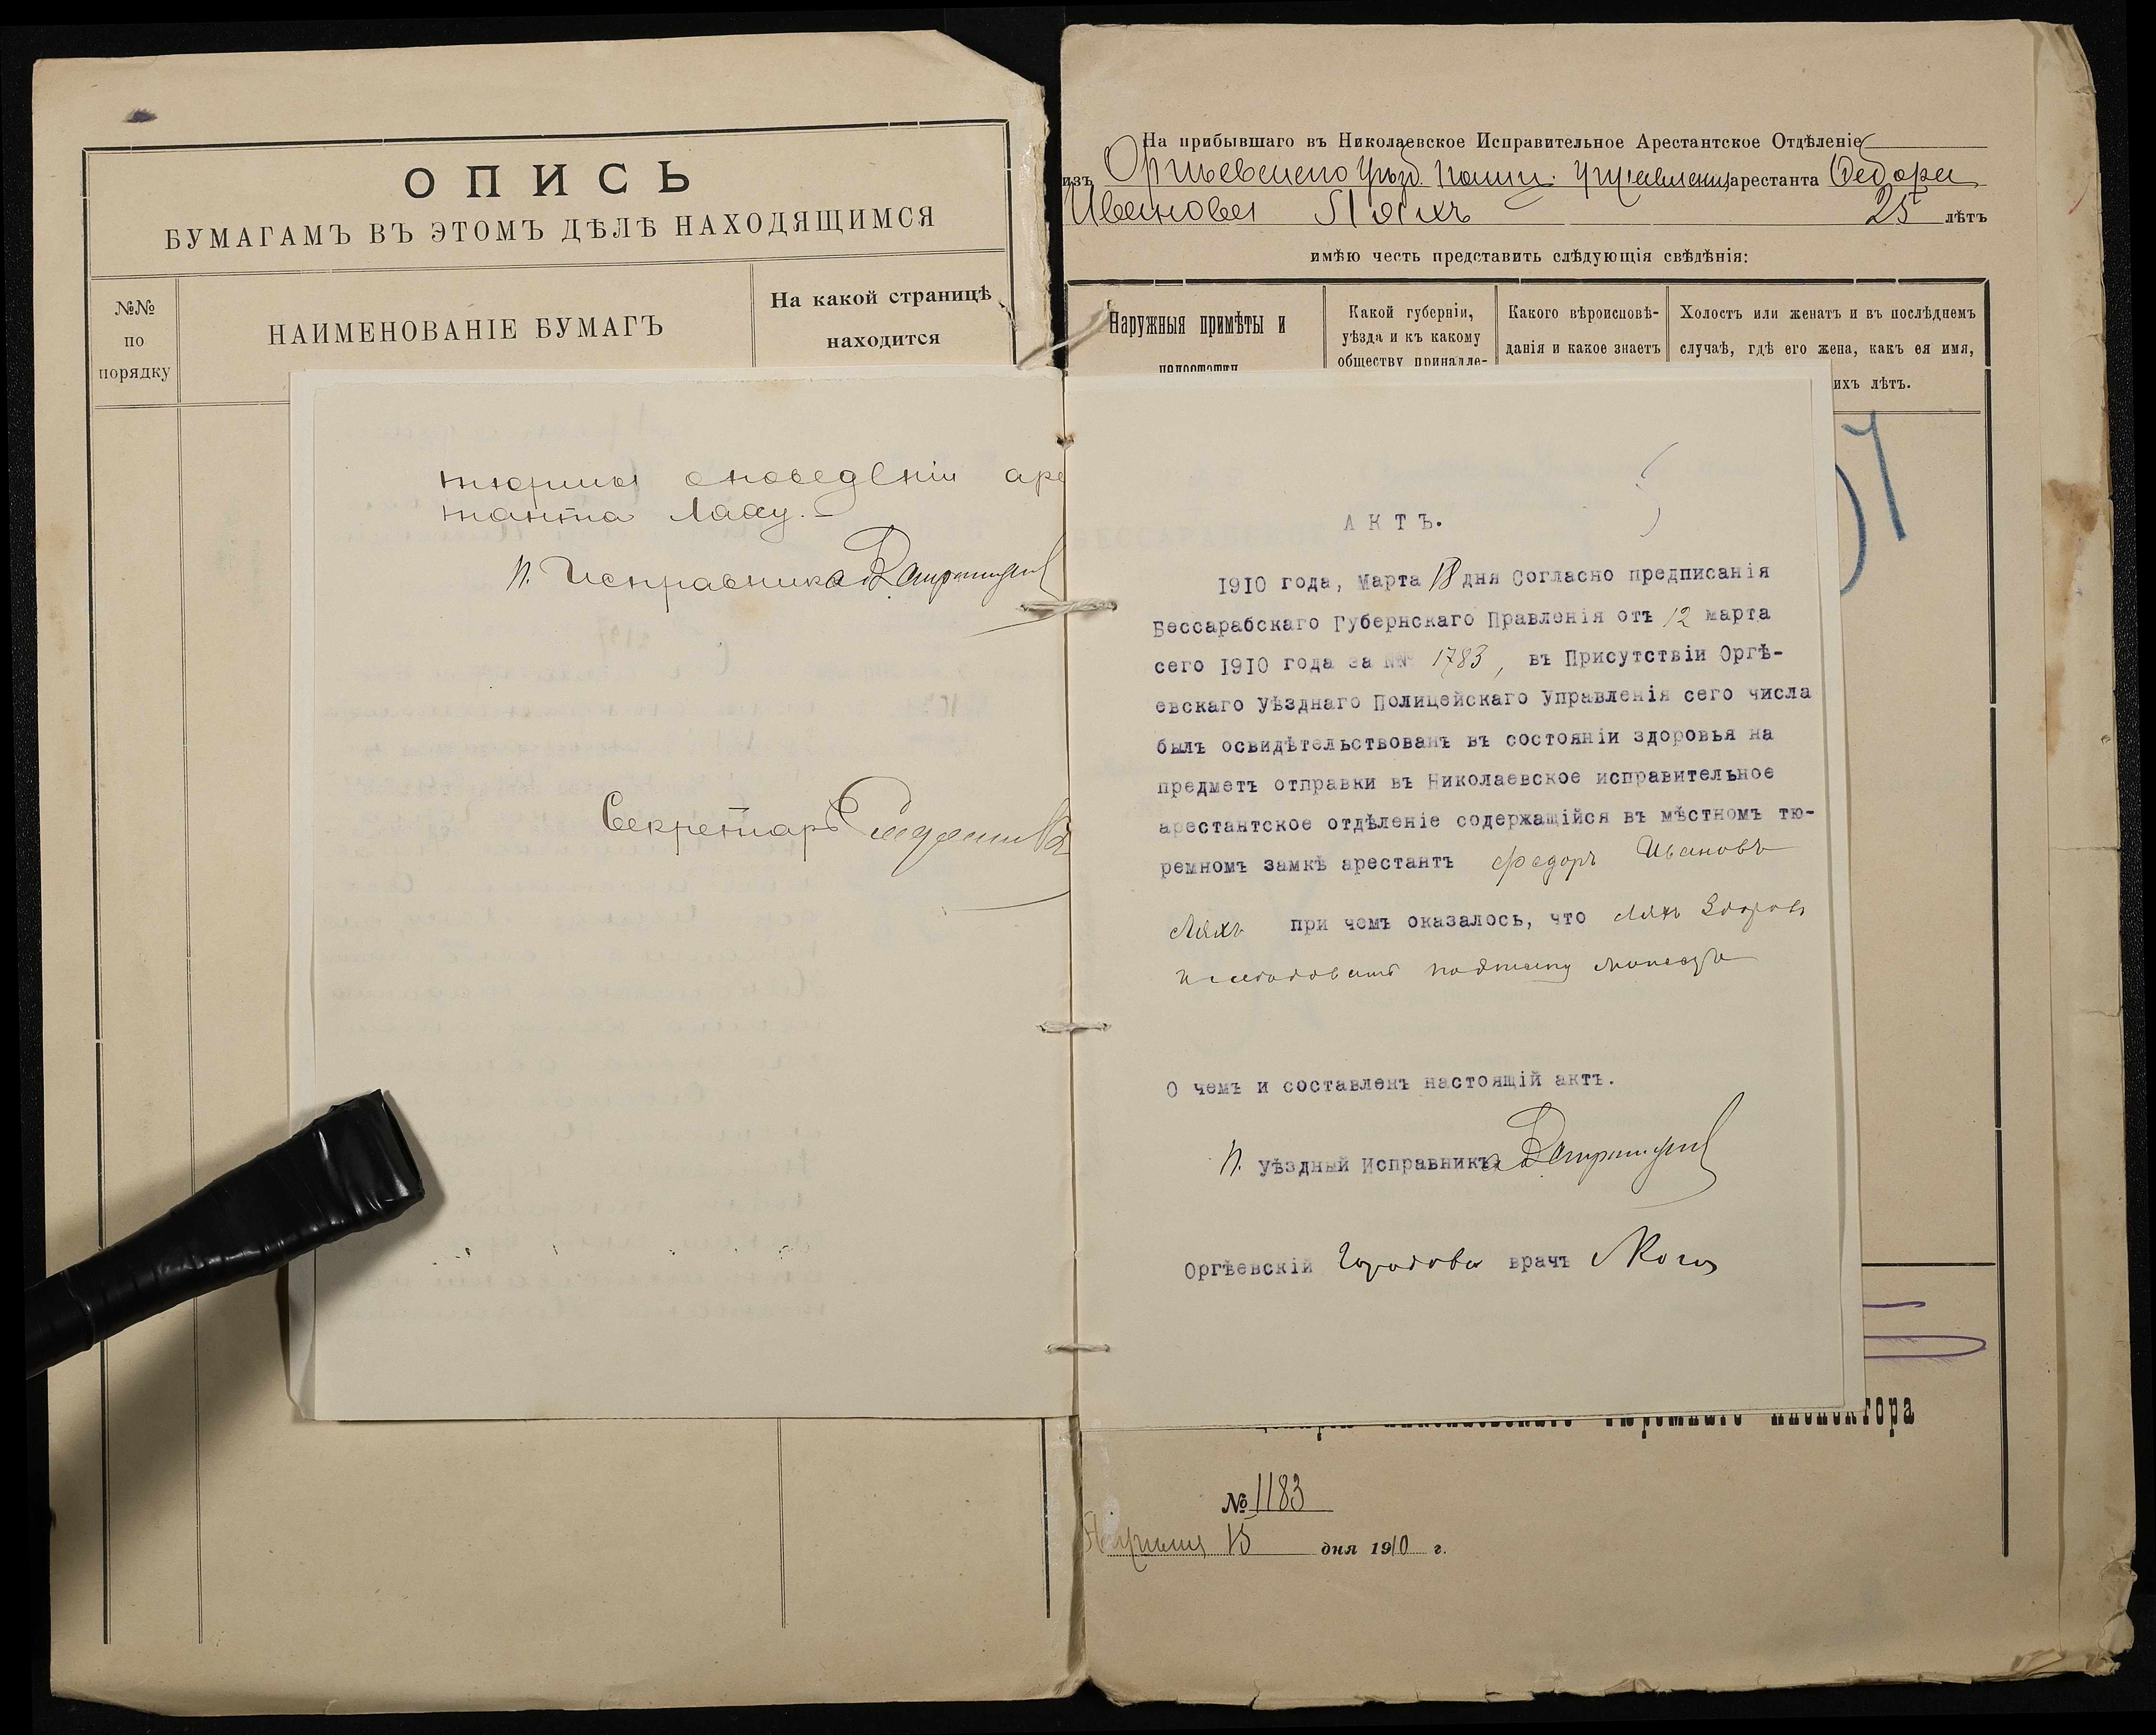 ОПИСЬ
БУМАГАМЪ ВЪ ЭТОМЪ ДѢЛѢ НАХОДЯЩИМСЯ
№№
по
порядку
НАИМЕНОВАНІЕ БУМАГЪ
На какой страницѣ
находится
тюрьмы о поведеніи аре
танта Ляху.
И. Исправника
Секретарь
На прибывшаго въ Николаевское Исправительное Арестантское Отдѣленіе
изъ Оргѣевскаго Уѣзд. Полиц. Управленія арестанта Федора
Иванова Ляхъ 25 лѣтъ
имѣю честь представить слѣдующія свѣдѣнія:
Наружныя примѣты и
недостатки
Какой губерніи,
уѣзда и къ какому
обществу принадле-
Какого вѣроисповѣ-
данія и какое знаетъ
Холостъ или женатъ и въ послѣднемъ
случаѣ, гдѣ его жена, какъ ея имя,
ихъ лѣтъ.
АКТЪ.
1910 года, Марта 18 дня Согласно предписанія
Бессарабскаго Губернскаго Правленія отъ 12 марта
сего 1910 года за № 1783, въ Присутствіи Оргѣ-
евскаго Уѣзднаго Полицейскаго Управленія сего числа
былъ освидѣтельствованъ въ состояніи здоровья на
предметъ отправки въ Николаевское исправительное
арестантское отдѣленіе содержащійся въ мѣстномъ тю-
ремномъ замкѣ арестантъ Федоръ Ивановъ
Ляхъ при чемъ оказалось, что Ляхъ Здоровъ
и слѣдовать можетъ
О чемъ и составленъ настоящій актъ.
И. Уѣздный Исправникъ
Оргѣевскій Городовой врачъ
Тюремнаго Инспектора
№ 1183
Апрѣля 15 дня 1910 г.